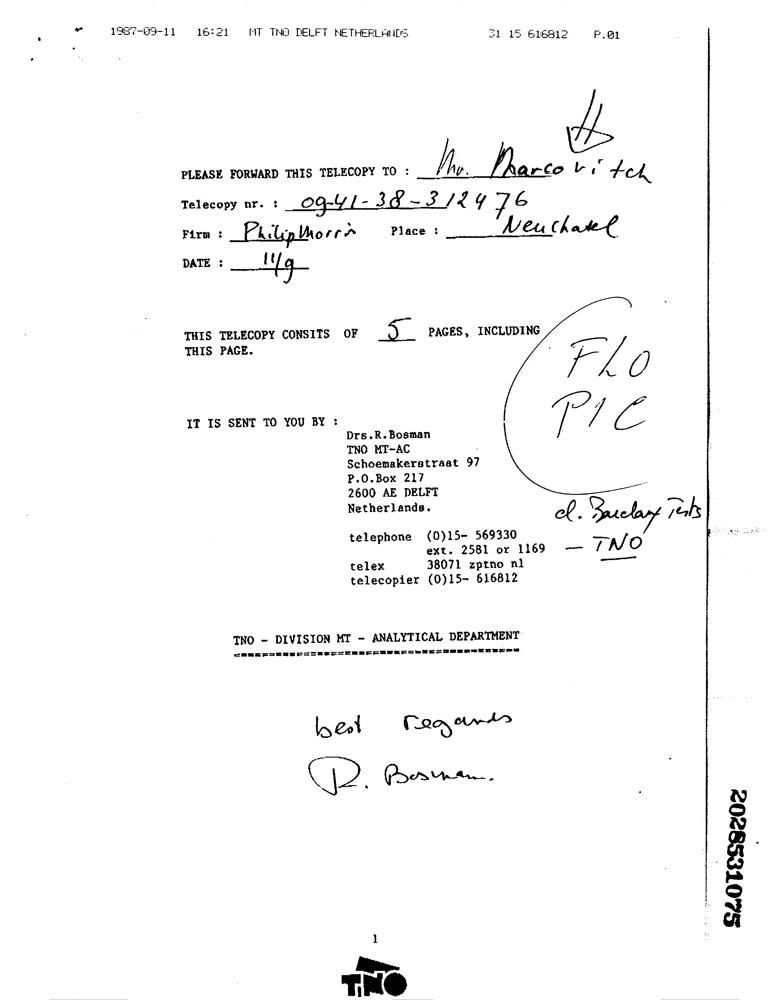 1987-09-11 16:21 MT TNO DELFT NETHERLANDS 31 15 616812 P.01
PLEASE FORWARD THIS TELECOPY TO : Mr. Marcovitch
Telecopy nr. : 09-41-38-312476
Firm : Philip Morris Place : Neuchatel
DATE : 11/9
THIS TELECOPY CONSITS OF 5 PAGES, INCLUDING
THIS PAGE.
FLO
PIC
IT IS SENT TO YOU BY :
Drs.R.Bosman
TNO MT-AC
Schoemakerstraat 97
P.O.Box 217
2600 AE DELFT
Netherlands.
cl. Barclay Tests
— TNO
telephone (0)15- 569330
ext. 2581 or 1169
telex 38071 zptno nl
telecopier (0)15- 616812
TNO - DIVISION MT - ANALYTICAL DEPARTMENT
best regards
R. Bosman.
2028531075
1
TNO